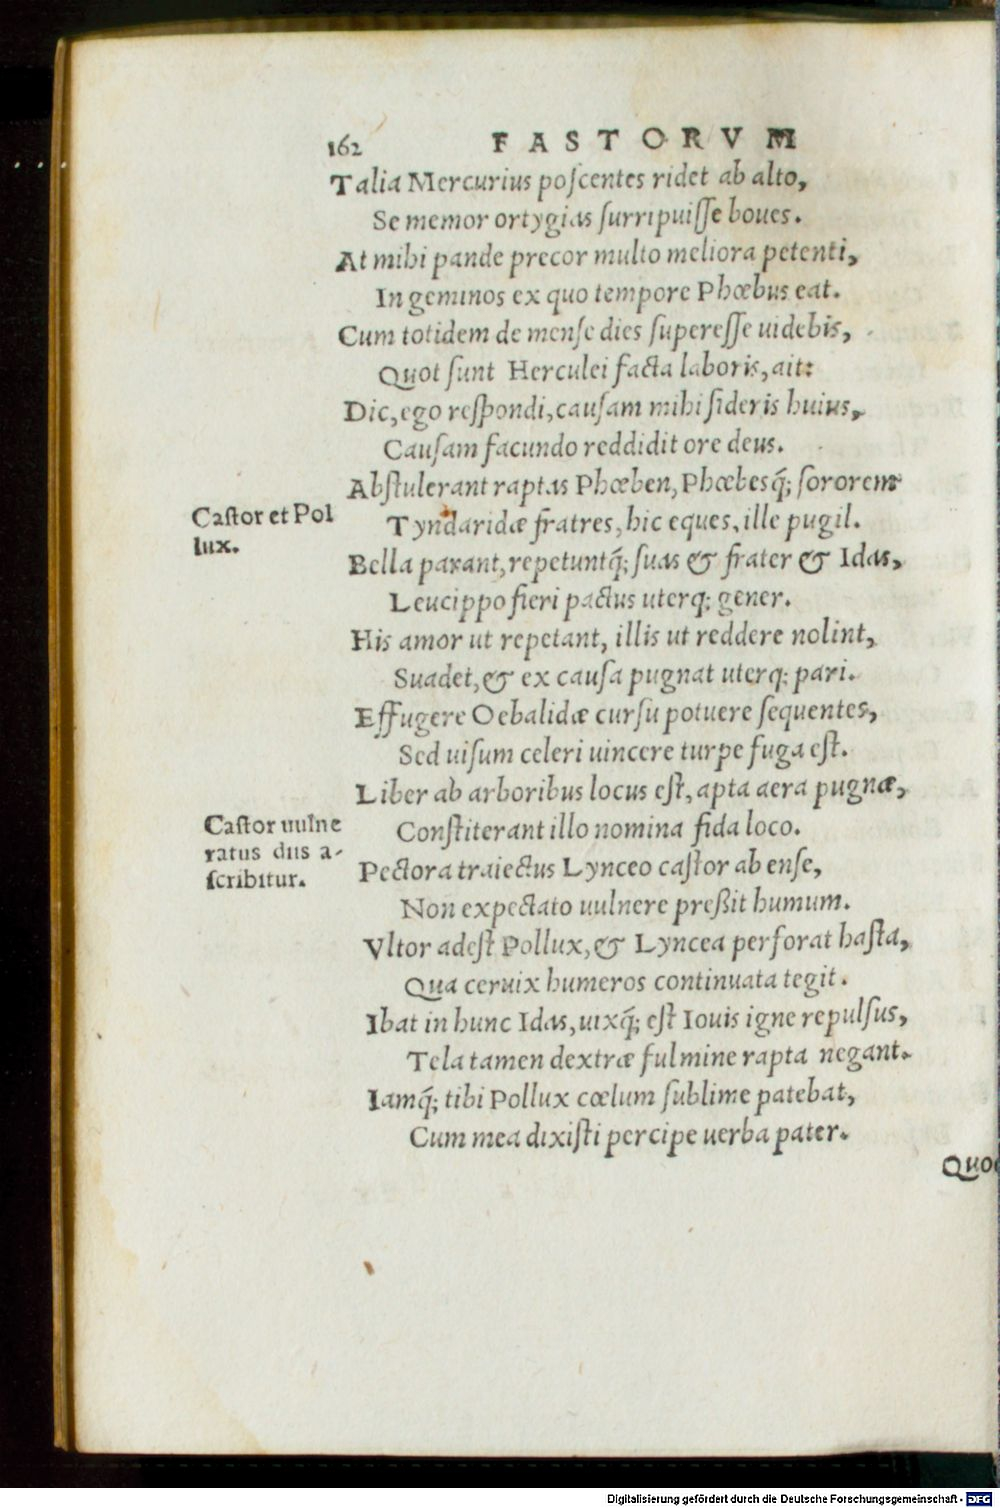 162 FASTORVM
Talia Mercurius poſcentes ridet ab alto,
Se memor ortygias ſurripuiſſe boues.
At mihi pande precor multo meliora petenti,
In geminos ex quo tempore Phœbus eat.
Cum totidem de menſe dies ſupereſſe uidebis,
Quot ſunt Herculei facta laboris, ait:
Dic, ego reſpondi, cauſam mihi ſideris huius,
Cauſam facundo reddidit ore deus.
Abſtulerant raptas Phœben, Phœbesq́; ſororem
Castor et Pol
lux.
Tyndaridæ fratres, hic eques, ille pugil.
Bella parant, repetuntq́; ſuas & frater & Idas,
Leucippo fieri pactus uterq; gener.
His amor ut repetant, illis ut reddere nolint,
Suadet, & ex cauſa pugnat uterq; pari.
Effugere Oebalidæ curſu potuere ſequentes,
Sed uiſum celeri uincere turpe fuga eſt.
Liber ab arboribus locus eſt, apta aera pugnæ,
Castor uulne
ratus diis a-
ſcribitur.
Conſtiterant illo nomina fida loco.
Pectora traiectus Lynceo caſtor ab enſe,
Non expectato uulnere preßit humum.
Vltor adeſt Pollux, & Lyncea perforat haſta,
Qua ceruix humeros continuata tegit.
Ibat in hunc Idas, uixq́; eſt Iouis igne repulſus,
Tela tamen dextræ fulmine rapta negant.
Iamq́; tibi Pollux cœlum ſublime patebat,
Cum mea dixiſti percipe uerba pater.
Quod
Digitalisierung gefördert durch die Deutsche Forschungsgemeinschaft - DFG